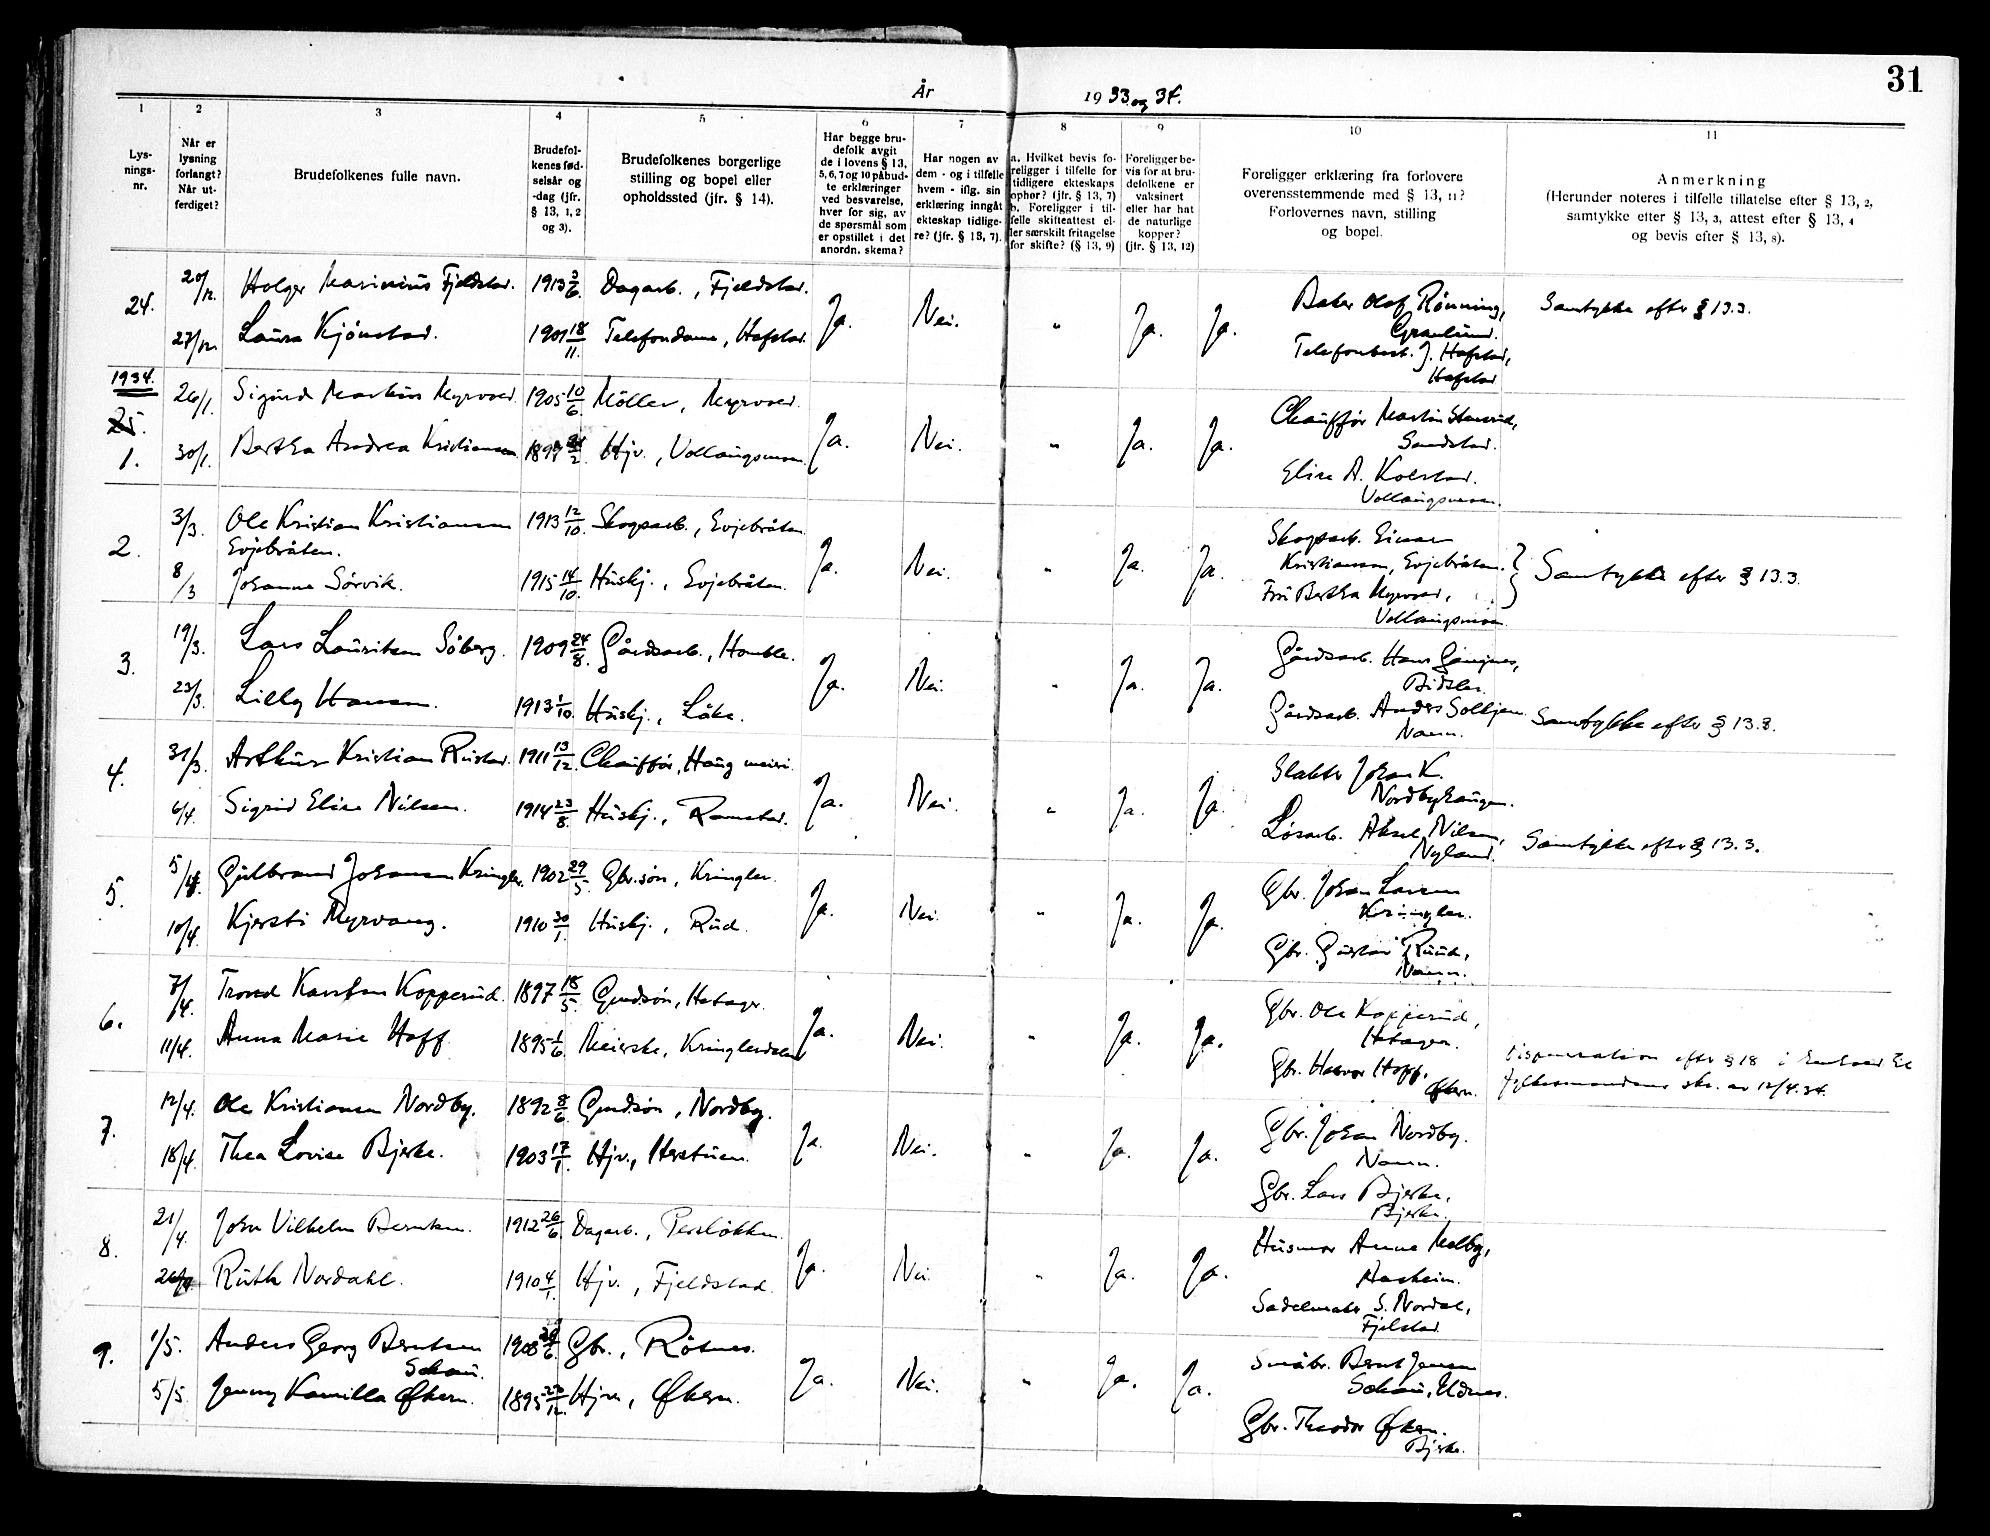 31
År 1933 og 34.
1 2 3 4 5 6 7 8 9 10 11
Lys-
nings-
nr.
Når er
lysning
forlangt?
Når ut-
ferdiget?
Brudefolkenes fulle navn.
Brudefol-
kenes fød-
selsår og
-dag (jfr.
§ 13, 1, 2
og 3).
Brudefolkenes borgerlige
stilling og bopel eller
opholdssted (jfr. § 14).
Har begge bru-
defolk avgit
de i lovens § 13,
5, 6, 7 og 10 påbud-
te erklæringer
ved besvarelse,
hver for sig, av
de spørsmål som
er opstillet i det
anordn. skema?
Har nogen av
dem - og i tilfelle
hvem - iflg. sin
erklæring inngåt
ekteskap tidlige-
re? (jfr. § 13, 7).
a. Hvilket bevis fo-
religger i tilfelle for
tidligere ekteskaps
ophør? (jfr. § 13, 7)
b. Foreligger i til-
felle skifteattest el-
ler særskilt fritagelse
for skifte? (§ 13, 9)
Foreligger be-
vis for at bru-
defolkene er
vaksinert
eller har hat
de naturlige
kopper?
(jfr. § 13, 12)
Foreligger erklæring fra forlovere
overensstemmende med § 13, 11?
Forlovernes navn, stilling
og bopel.
Anmerkning
(Herunder noteres i tilfelle tillatelse efter § 13, 2,
samtykke efter § 13, 3, attest efter § 13, 4
og bevis efter § 13, 8).
24.
20/12. Holger Marinius Fjeldstad. 1913 3/6. Dagarb., Fjeldstad.
27/12. Laura Kjønstad. 1901 18/11. Telefondame, Hafstad.
Ja. Nei. " Ja. Ja.
Baker Olof Rønning,
Granlund.
Telefonbest. J. Hafstad,
Hafstad
Samtykke efter § 13.3.
1934.
25.
1.
26/1. Sigurd Markus Myrvold. 1905 10/6. Møller, Myrvold.
30/1. Bertha Andrea Kristiansen 1899 24/2. Hjv., Vollaugsmoen
Ja. Nei. " Ja. Ja.
Chauffør Martin Stensrud,
Sandstad.
Elise A. Kolstad.
Vollaugsmoen.
2.
3/3. Ole Kristian Kristiansen 1913 12/10. Skogsarb., Evjebråten
Evjebråten.
8/3 Johanne Sørvik. 1915 14/10. Huskj., Evjebråten.
Ja. Nei. " Ja. Ja.
Skogsarb. Einar
Kristiansen, Evjebråten.
Fru Bertha Myrvold,
Vollaugsmoen.
Samtykke efter § 13.3.
3.
19/3. Lars Lauritsen Søberg. 1909 24/8. Gårdsarb., Homble.
23/3. Lilly Hansen. 1913 1/10. Huskj., Løke.
Ja. Nei. " Ja. Ja.
Gårdsarb. Hans Gaugnes,
Bidsler.
Gårdsarb. Anders Solhjem
Nann.
Samtykke efter § 13.3.
4.
31/3. Arthur Kristian Rustad. 1911 13/12. Chauffør, Haug meieri.
6/4. Sigrid Elise Nilsen. 1914 23/8. Huskj., Ramstad.
Ja. Nei. " Ja. Ja.
Slakter Johan K.
Nordbyhaugen.
Løsarb. Aksel Nilsen,
Nyland.
Samtykke efter § 13.3.
5.
5/4. Gulbrand Johansen Kringler. 1902 29/5. Gbr.søn, Kringler.
10/4. Kjersti Myrvang. 1910 30/1. Huskj., Rud.
Ja. Nei. " Ja. Ja.
Gbr. Johan Larsen
Kringler.
Gbr. Gustav Ruud,
Nann.
6.
7/4. Trond Karsten Kopperud. 1897 18/5. Gmdsøn, Hetager.
11/4. Anna Marie Hoff. 1895 1/6. Meierske, Kringlerdalen
Ja. Nei. " Ja. Ja.
Gbr. Ole Kopperud,
Hetager.
Gbr. Halvor Hoff,
Økern.
Dispensation efter § 18 i henhold til
fylkesmandens skr. av 12/4.34.
7.
12/4. Ole Kristiansen Nordby. 1892 8/6. Gmdsøn, Nordby.
18/4. Thea Lovise Bjerke. 1903 17/1. Hjv., Herstuen.
Ja. Nei. " Ja. Ja.
Gbr. Johan Nordby.
Nann.
Gbr. Lars Bjerke,
Bjerke.
8.
21/4. John Vilhelm Berntsen. 1912 26/6. Dagarb., Persløkken.
26/4 Ruth Nordahl. 1910 4/1. Hjv., Fjeldstad.
Ja. Nei. " Ja. Ja.
Husmor Anna Melby,
Aasheim.
Sadelmaker S. Nordal,
Fjelstad
9.
1/5. Anders Georg Berntsen 1908 28/6. Gbr., Røtnes.
Schau.
5/5. Jenny Kamilla Økern. 1895 22/12. Hjv., Økern.
Ja. Nei. " Ja. Ja.
Småbr. Bernt Jensen
Schau, Eldnes.
Gbr. Theodor Økern.
Bjerke.